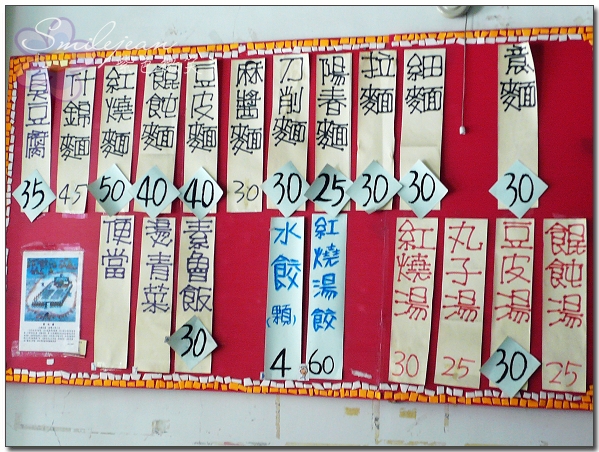 Smilejean
意麵 30
細麵 30
拉麵 30
陽春麵 25
刀削麵 30
麻醬麵 30
豆皮麵 40
餛飩麵 40
紅燒麵 50
什錦麵 45
臭豆腐 35
餛飩湯 25
豆皮湯 30
丸子湯 25
紅燒湯 30
紅燒湯餃 60
水餃(顆) 4
素魯飯 30
燙青菜
便當